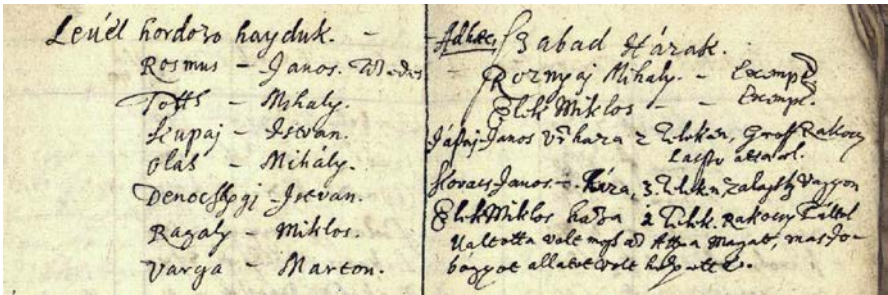 Leuél hordozo hayduk. -
Rosmus - Janos.
Totth - Mihaly.
Szupaj - Istvan.
Olas - Mihály.
Istvan.
Ragaly - Miklos.
Varga - Marton.
Adhuc Szabad Házak.
Roznyaj Mihaly. - Exempt.
Elek Miklos - - Exempt.
Jápaj Janos Vr haza 2 Teleken, Groff Rakoczy
Laszlo
Kovacs Janos - háza, 3. Teleken Vagyon
Elek Miklos haza 2 Telek. Rakoczy
Ualtotta volt most ad Attya Magat, mas Jo-
bagyot allatot volt